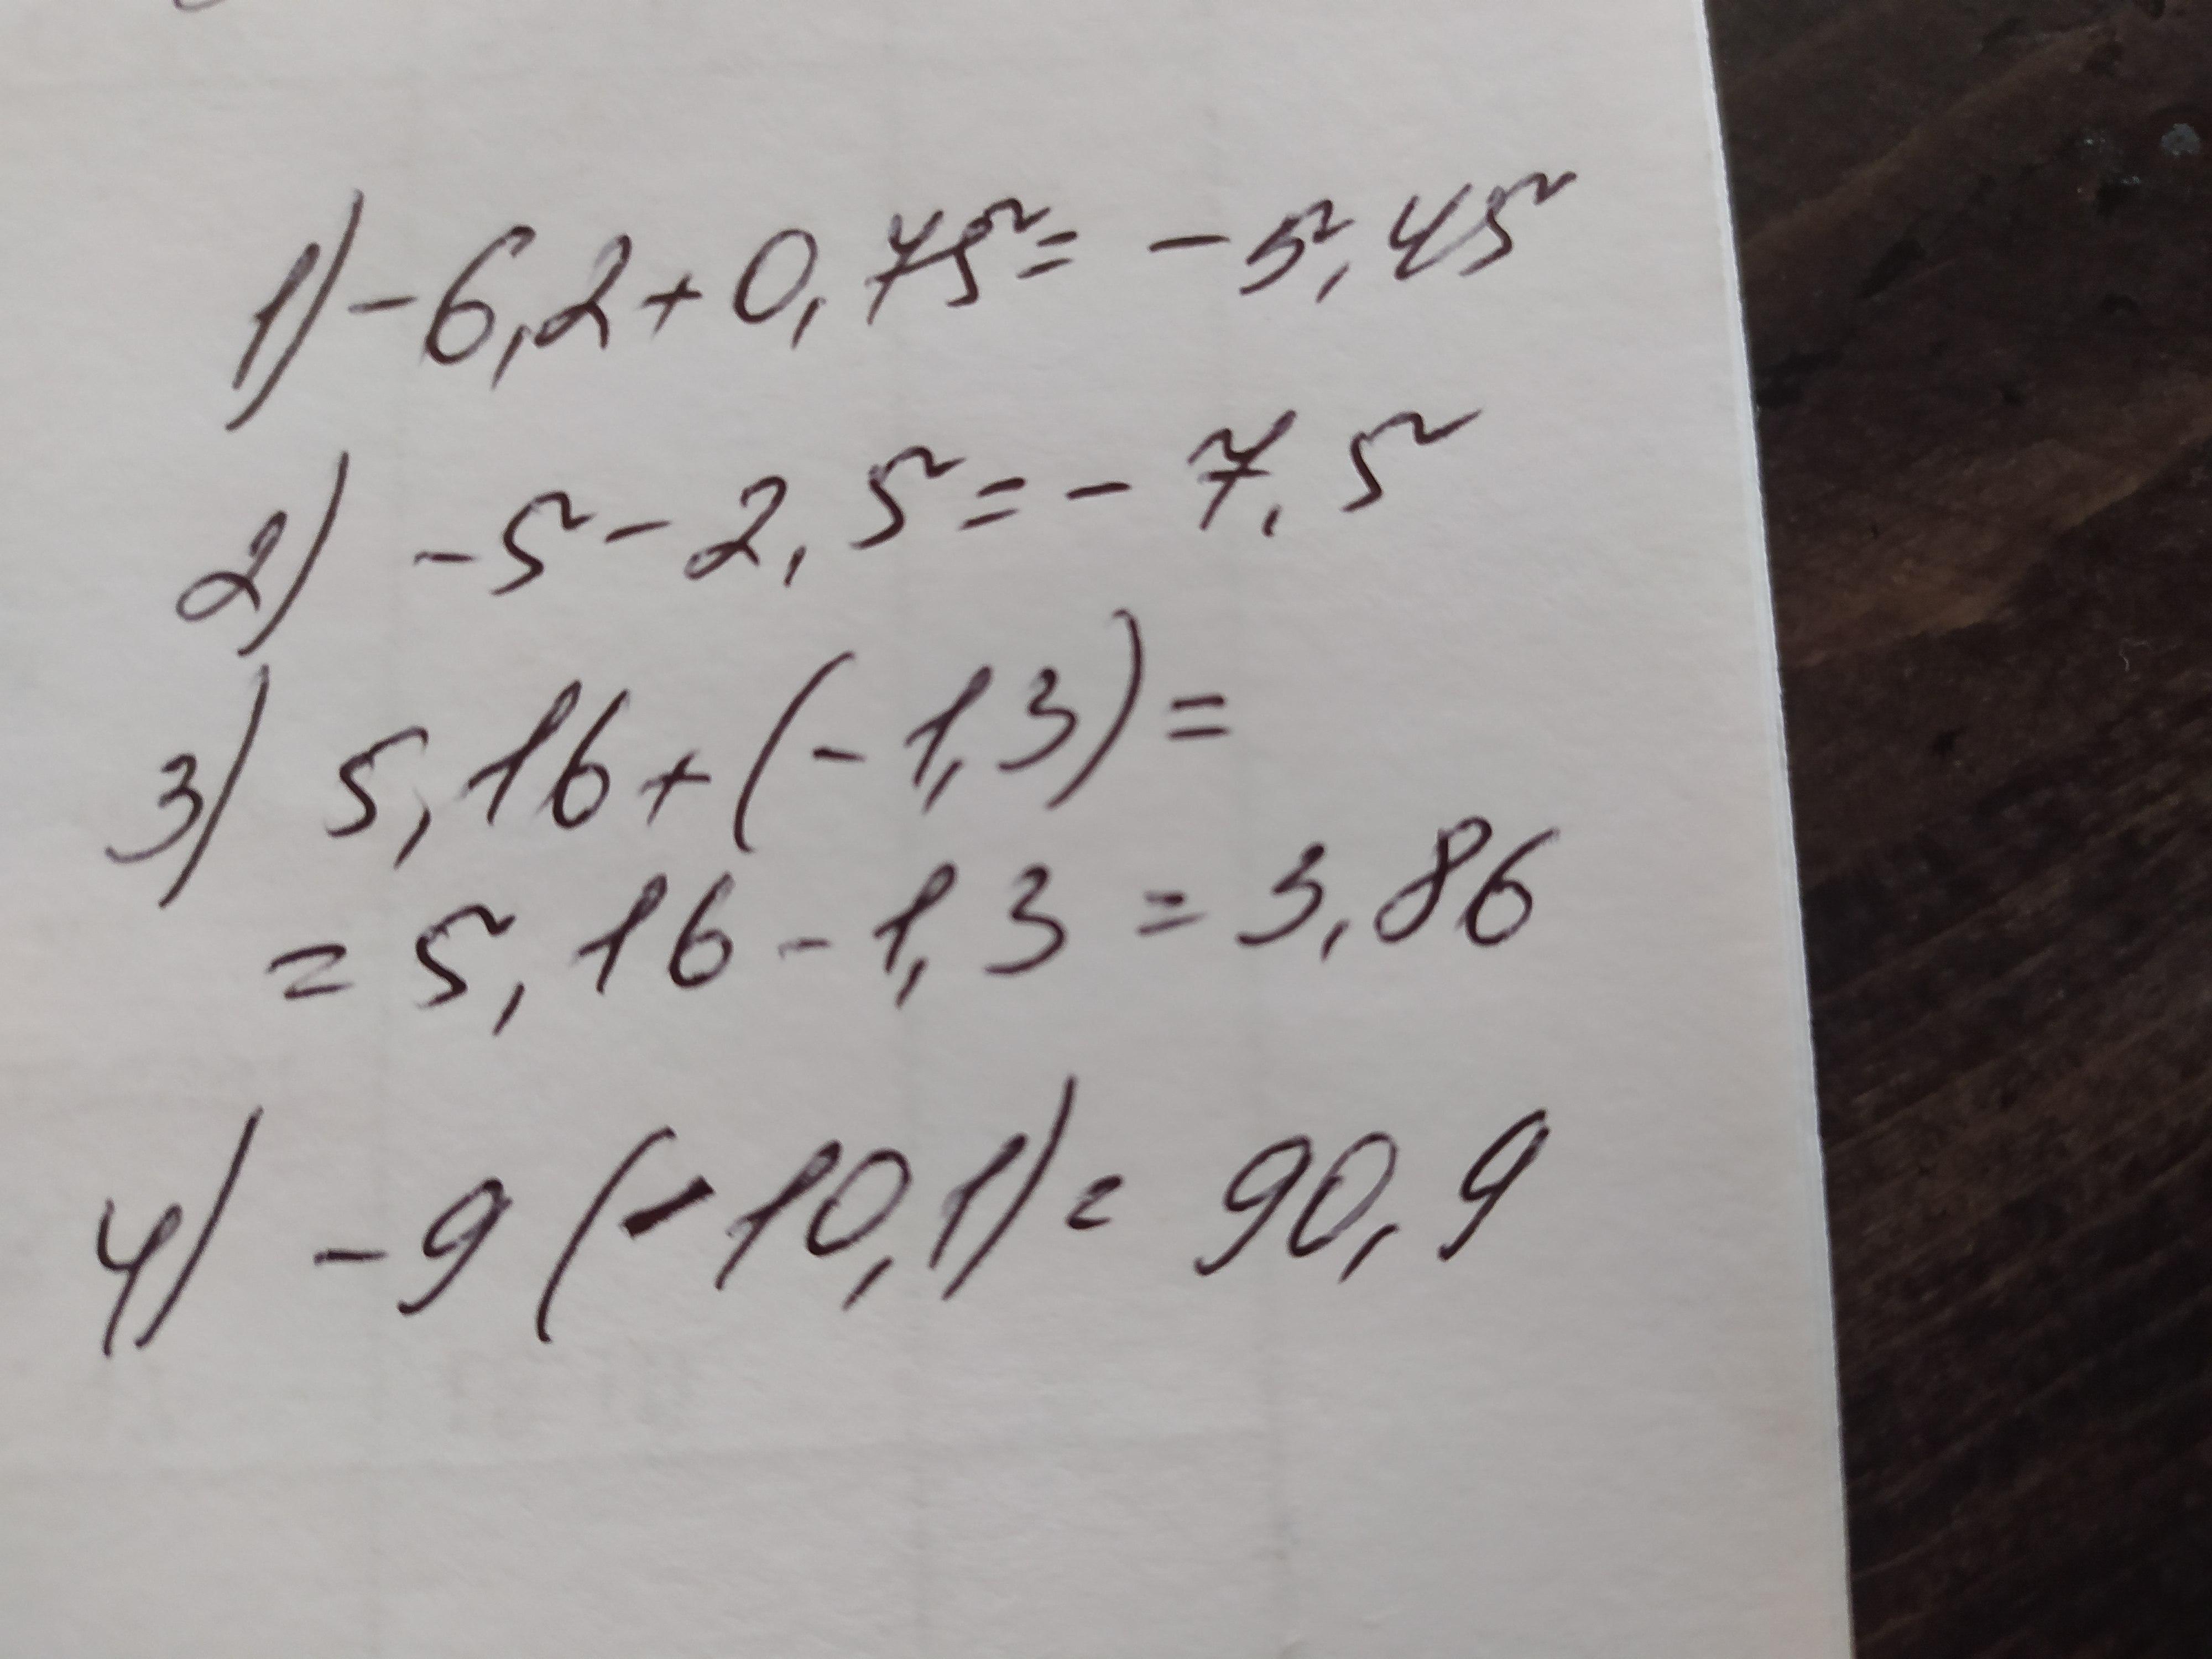 1) -6,2+0,75= -5,45
2) -5-2,5=-7,5
3) 5,16+(-1,3)=
=5,16-1,3=3,86
4) -9(-10,1)= 90,9